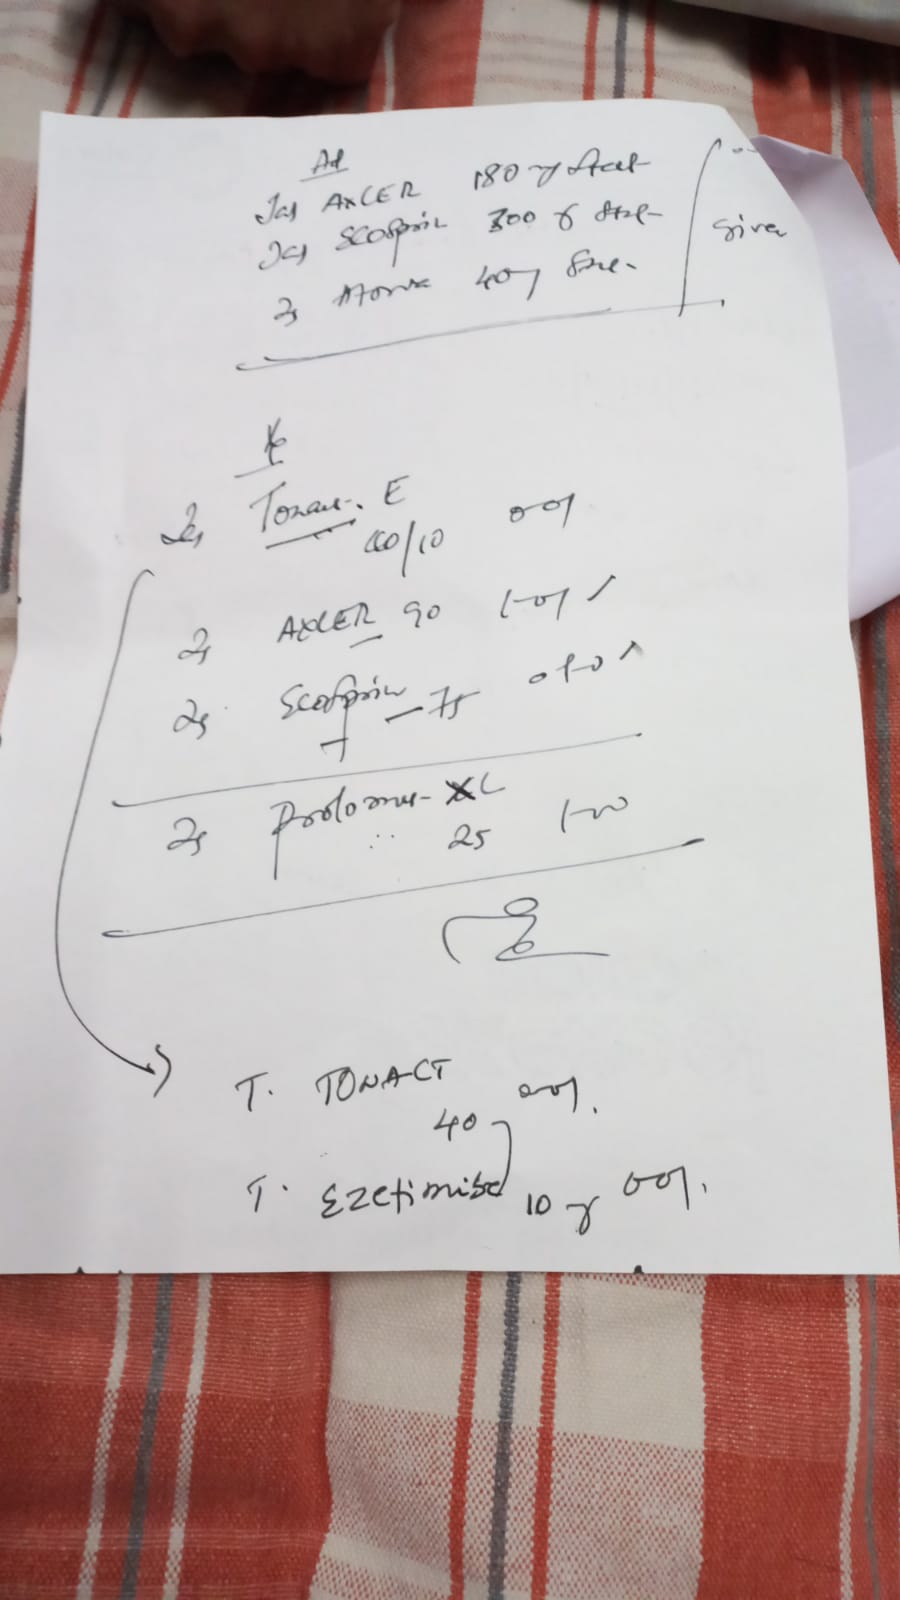 Ad
Tab AXCER 180 mg Stat
Tab Ecosprin 300 mg Stat
T Atorva 40mg Stat
given
Rx
T Tonact-E
40/10 001
T AXCER 90 1-01
T Ecosprin-75 0-1-0
T Prolomet-XL
25 1-00
T. TONACT
40 mg 001.
T. Ezetimibe 10 mg 001.